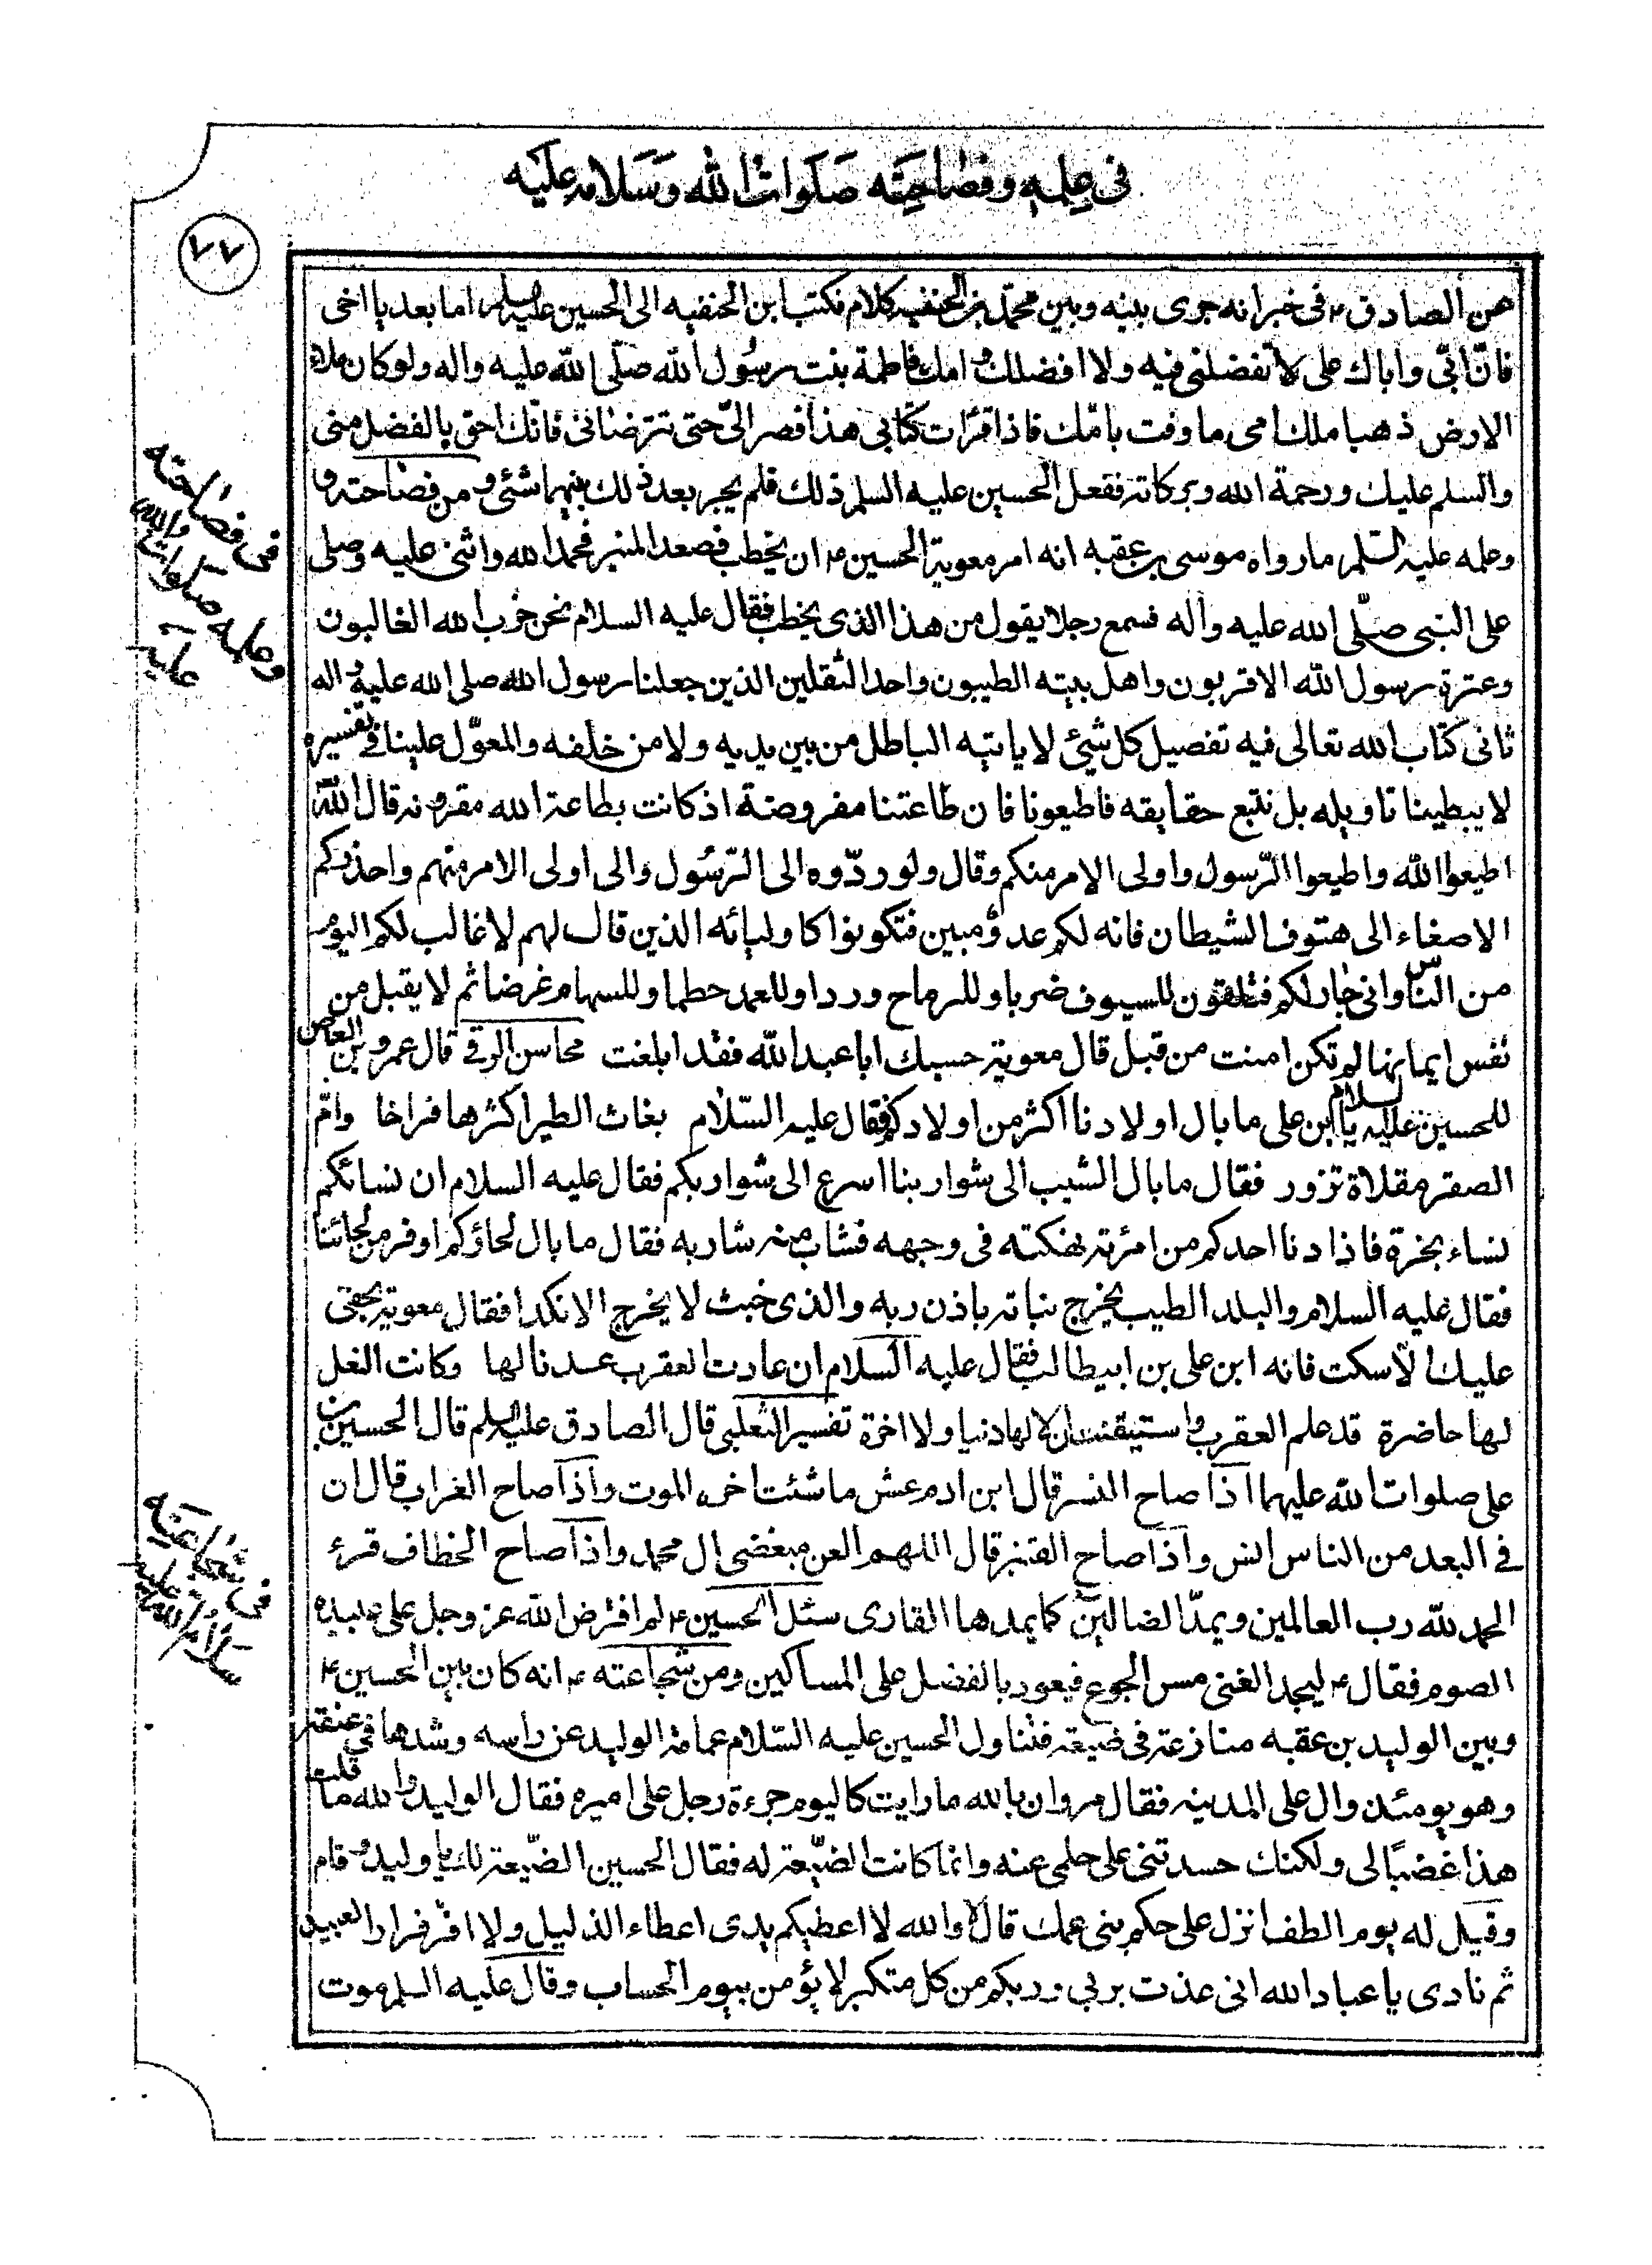 فى علمه وفصاحته صلوات الله وسلامه عليه
٧٧
عن الصادق ع فى خبر انه جرى بينه وبين محمد بن الحنفيه كلام فكتب ابن الحنفيه الى الحسين عليه السلم اما بعد يا اخى
فان ابى واباك على لا تفضلنى فيه ولا افضلك وامك فاطمة بنت رسول الله صلى الله عليه واله ولو كان ملاء
الارض ذهبا ملك امى ما وفت بامك فاذا قرات كتابى هذا فصر الى حتى تترضانى فانك احق بالفضل منى
والسلم عليك ورحمة الله وبركاته ففعل الحسين عليه السلم ذلك فلم يجر بعد ذلك بينهما شئ ومن فصاحته و
وعلمه عليه السلم ما رواه موسى بن عقبه انه امر معوية الحسين ع ان يخطب فصعد المنبر فحمد الله واثنى عليه وصلى
على النبى صلى الله عليه وآله فسمع رجلا يقول من هذا الذى يخطب فقال عليه السلام نحن حزب الله الغالبون
وعترة رسول الله الاقربون واهل بيته الطيبون واحد الثقلين الذين جعلنا رسول الله صلى الله عليه واله
ثانى كتاب الله تعالى فيه تفصيل كل شيئ لا ياتيه الباطل من بين يديه ولا من خلفه والمعول علينا فى تفسيره
لا يبطينا تاويله بل نتبع حقايقه فاطيعونا فان طاعتنا مفروضة اذ كانت بطاعة الله مقرونه قال الله
اطيعوا الله واطيعوا الرسول واولى الامر منكم وقال ولو ردوه الى الرسول والى اولى الامر منهم واحذركم
الاصغاء الى هتوف الشيطان فانه لكم عدو مبين فتكونوا كاوليائه الذين قال لهم لا غالب لكم اليوم
من الناس وانى جار لكم فتلقون للسيوف ضربا وللرماح وردا وللعمد حطما وللسهام غرضا ثم لا يقبل من
نفس ايمانها لم تكن امنت من قبل قال معوية حسبك ابا عبد الله فقد ابلغت محاسن البرقى قال عمرو بن العاص
للحسين عليه السلام يا ابن على ما بال اولادنا اكثر من اولادكم فقال عليه السلام بغاث الطير اكثرها فراخا وام
الصقر مقلاة تزور فقال ما بال الشيب الى شواربنا اسرع الى شواربكم فقال عليه السلام ان نسائكم
نساء بخرة فاذا دنا احدكم من امرئته نهكته فى وجهه فشاب منه شاربه فقال ما بال لحاؤكم اوفر من لحائنا
فقال عليه السلام والبلد الطيب يخرج نباته باذن ربه والذى خبث لا يخرج الا نكدا فقال معوية بحقى
عليك الا سكت فانه ابن على بن ابيطالب فقال عليه السلام ان عادت العقرب عدنا لها وكانت النعل
لها حاضرة قد علم العقرب واستيقنت ان لا لها دنيا ولا اخرة تفسير الثعلبى قال الصادق عليه السلم قال الحسين بن
على صلوات الله عليهما اذا صاح النسر قال ابن ادم عش ما شئت اخره الموت واذا صاح الغراب قال ان
فى البعد من الناس انس واذا صاح القنبر قال اللهم العن مبغضى ال محمد واذا صاح الخطاف قرء
الحمد لله رب العالمين ويمد الضالين كما يمدها القارى سئل الحسين ع لم افترض الله عز وجل على عبيده
الصوم فقال ع ليجد الغنى مس الجوع فيعود بالفضل على المساكين ومن شجاعته ع انه كان بين الحسين ع
وبين الوليد بن عقبه منازعة فى ضيعة فتناول الحسين عليه السلام عمامة الوليد عن راسه وشدها فى عنقه
وهو يومئذ وال على المدينه فقال مروان بالله ما رايت كاليوم جرءة رجل على اميره فقال الوليد والله ما قلت
هذا غضبا لى ولكنك حسدتنى على حلمى عنه وانما كانت الضيعة له فقال الحسين الضيعة لك يا وليد وقام
وقيل له يوم الطف انزل على حكم بنى عمك قال لا والله لا اعطيكم يدى اعطاء الذليل ولا افر فرار العبيد
ثم نادى يا عباد الله انى عذت بربى وربكم من كل متكبر لا يؤمن بيوم الحساب وقال عليه السلم موت
فى فصاحته
وعلمه صلوات الله
عليه
فى شجاعته
سلام الله عليه